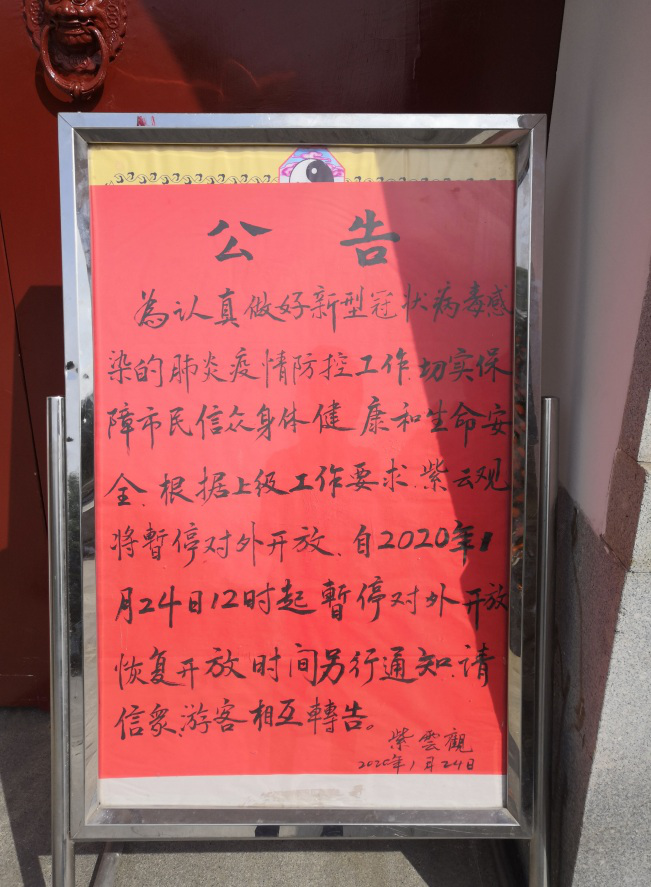 公告
為认真做好新型冠状病毒感
染的肺炎疫情防控工作.切实保
障市民信众身体健康和生命安
全.根据上级工作要求.紫云观
将暫停对外开放.自2020年1
月24日12时起暫停对外开放
恢复开放时间另行通知.请
信眾.游客相互轉告。
紫雲觀
2020年1月24日